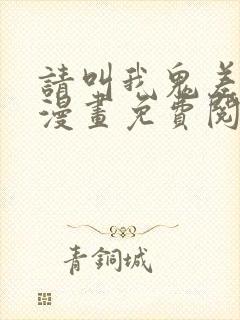 請叫我鬼差
漫畫免費閱
青銅城